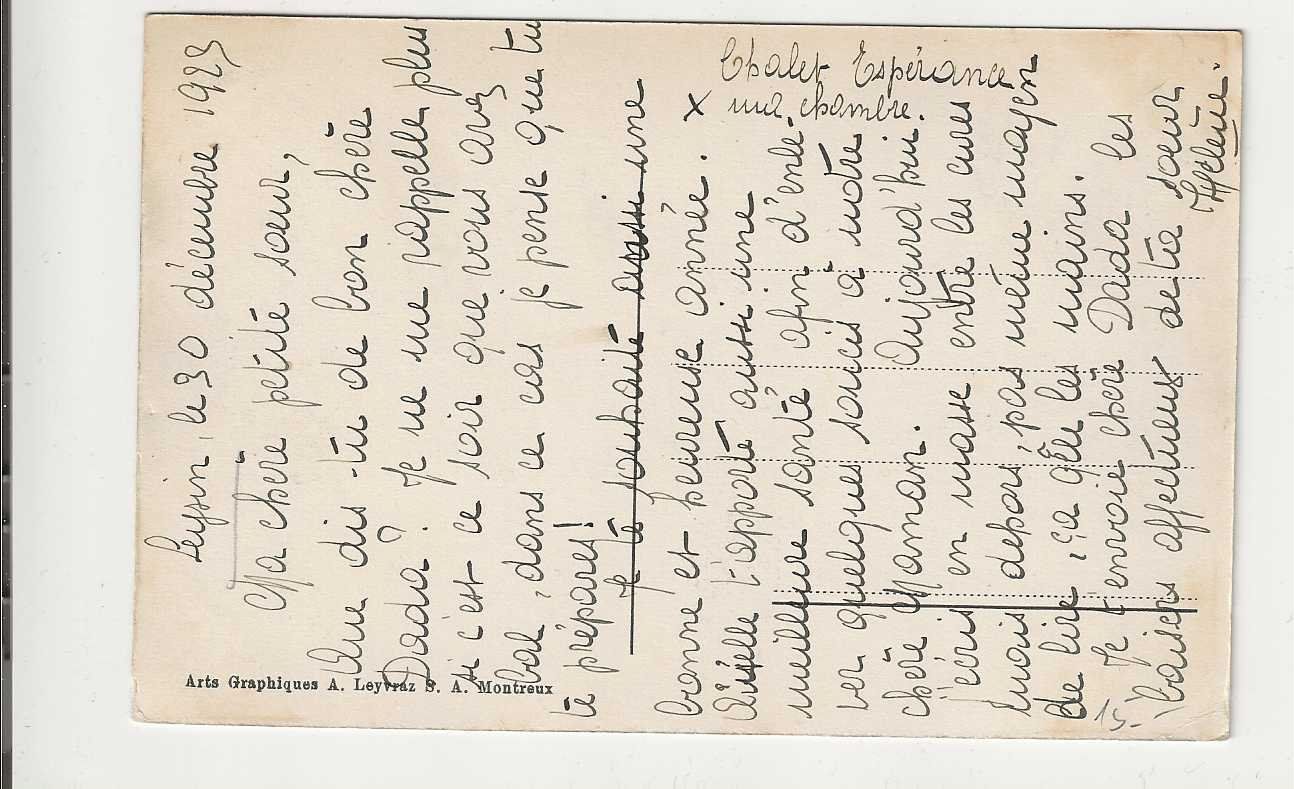 Leysin, le 30 décembre 1923
Ma chère petite sœur,
Que dis-tu de bon chère
Dada? Je ne me rappelle plus
si c'est ce soir que vous avez
bal, dans ce cas je pense que tu
te prépares!
Je te souhaite aussi une
bonne et heureuse année.
Qu'elle t'apporte aussi une
meilleure santé afin d'enle
ver quelques soucis à notre
chère Maman. Aujourd'hui
j'écris en masse entre les cures
mais dehors, pas même moyen
de lire, ça gèle les mains.
Je t'envoie chère Dada les
baisers affectueux de ta sœur
Hélène.
Chalet Espérance
x ma chambre.
15-
Arts Graphiques A. Leyvraz S. A. Montreux